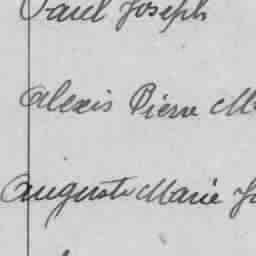 Paul Joseph
Alexis Pierre M
Auguste Marie J